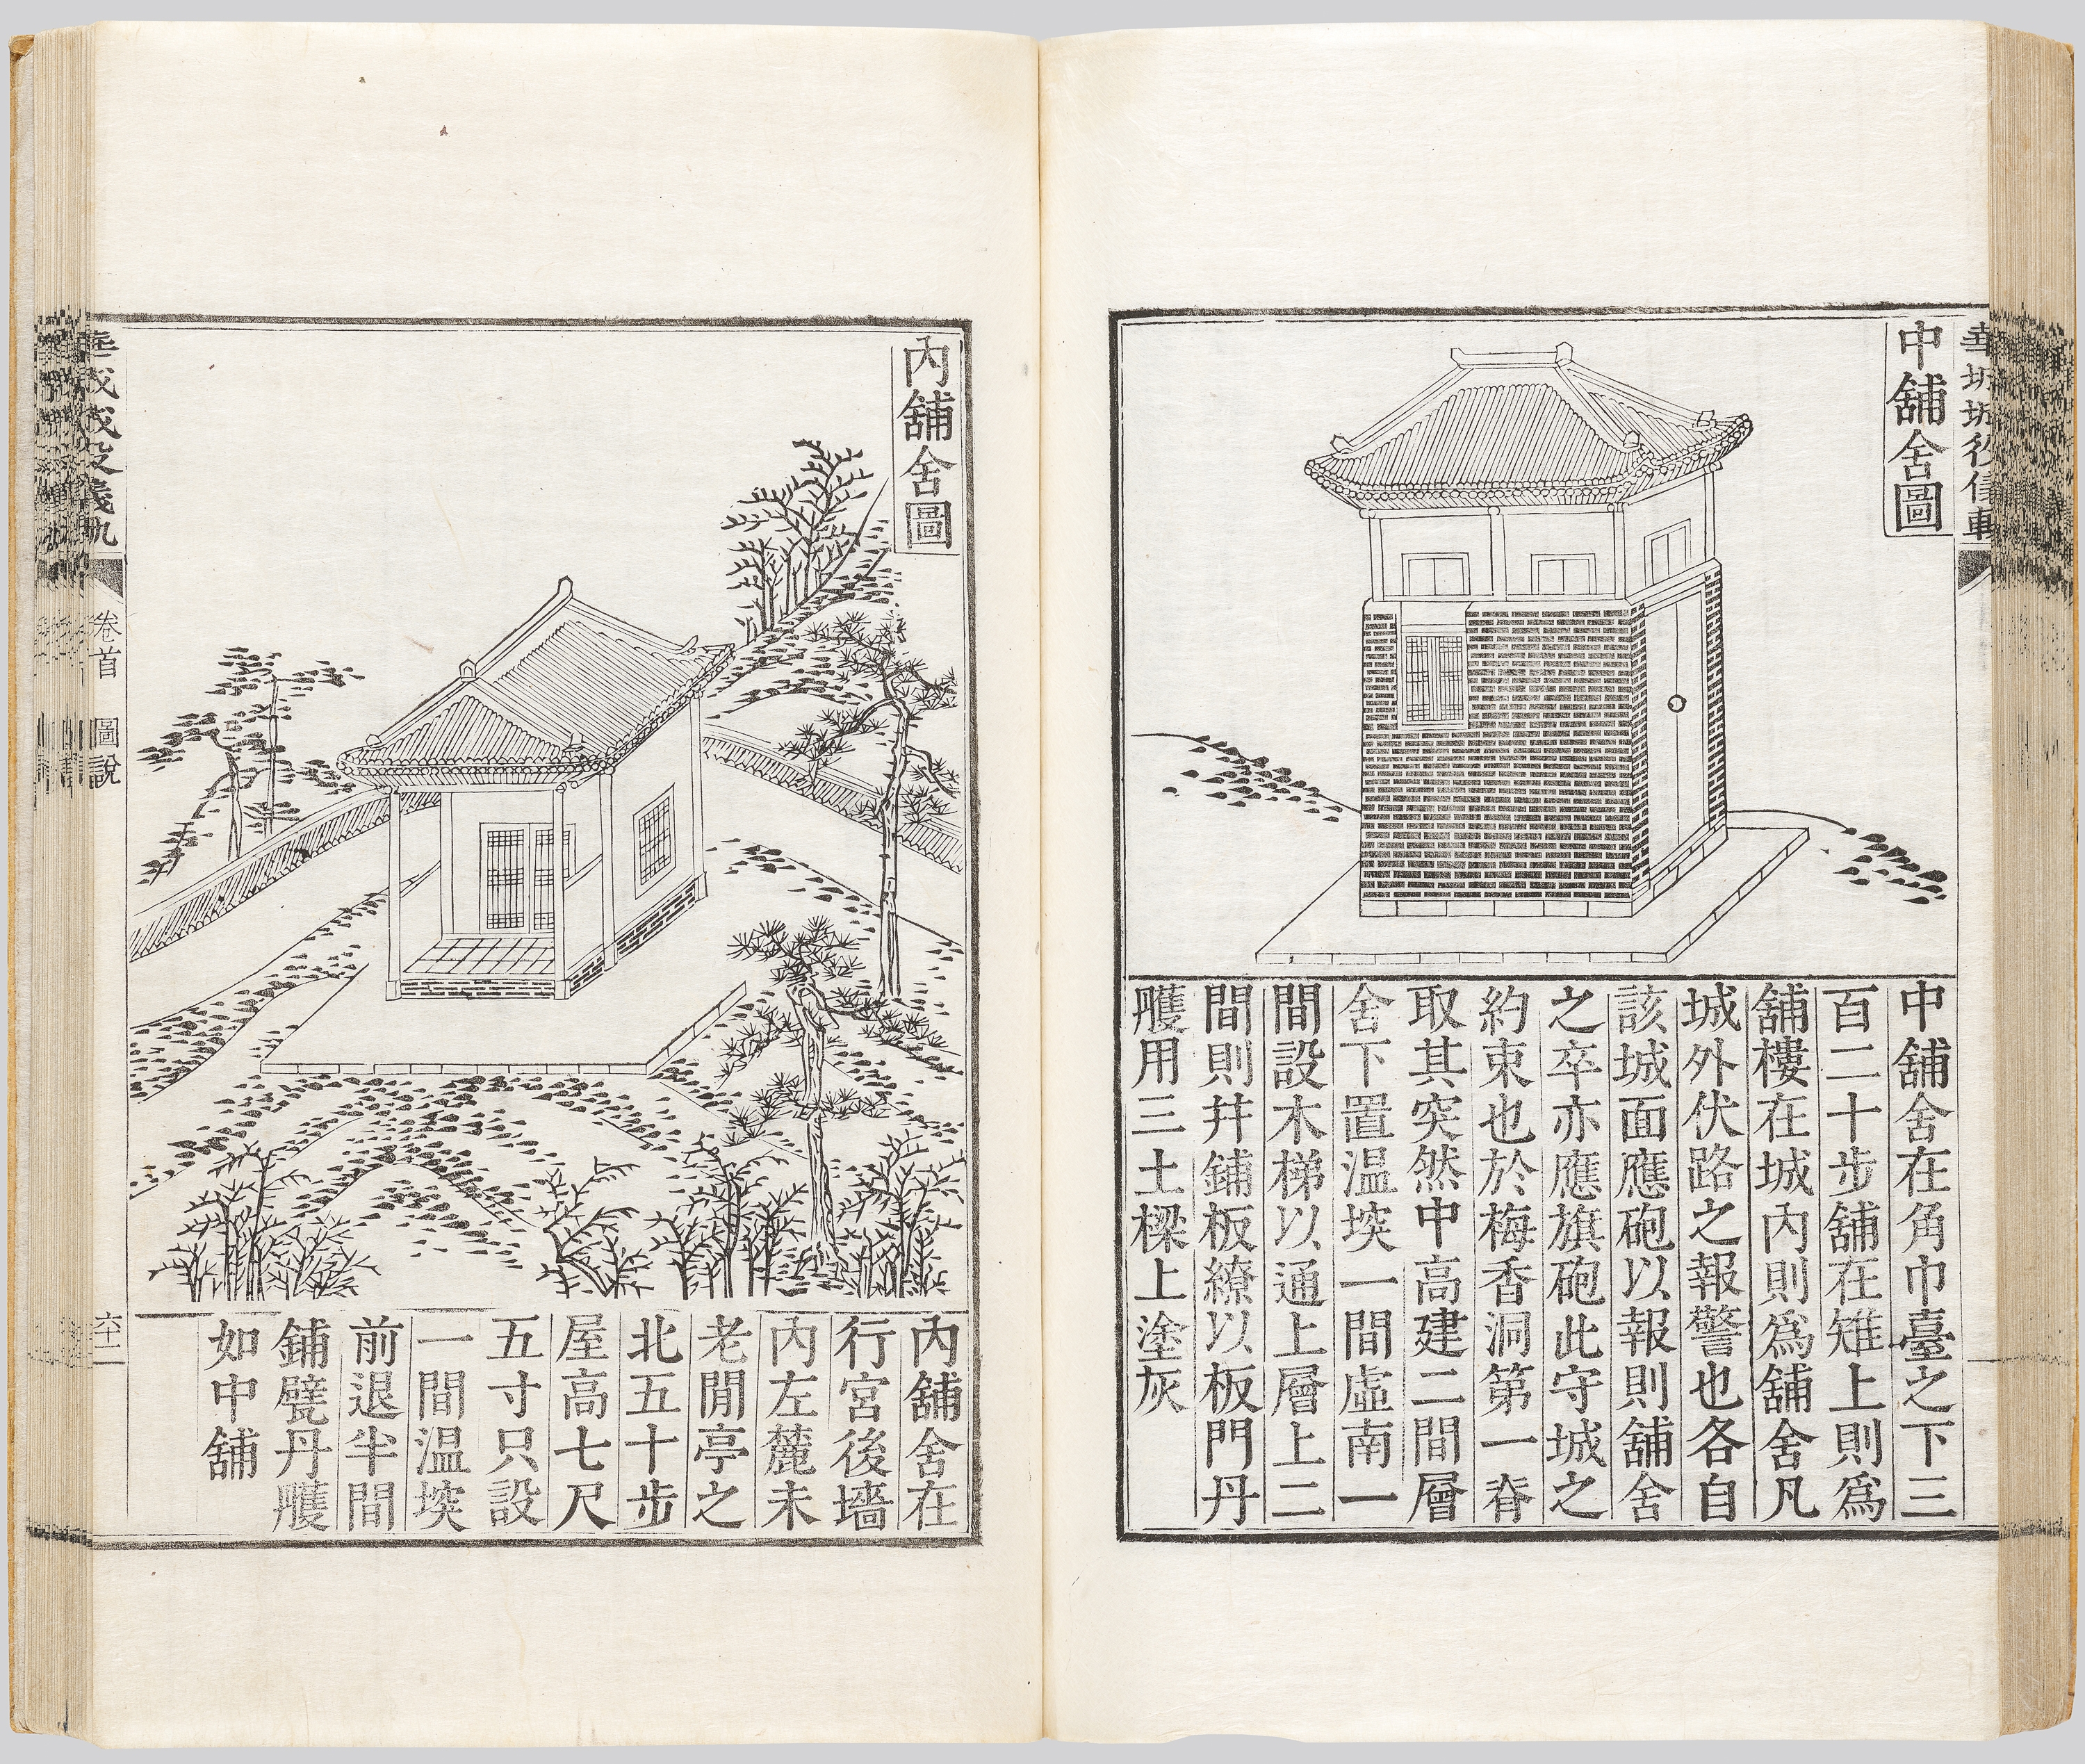 華城城役儀軌
中舖舍圖
中舖舍在角巾臺之下三
百二十步舖在雉上則爲
舖樓在城內則爲舖舍凡
城外伏路之報警也各自
該城面應砲以報則舖舍
之卒亦應旗砲此守城之
約束也於梅香洞第一脊
取其突然中高建二間層
舍下置温堗一間虛南一
間設木梯以通上層上二
間則幷鋪板繚以板門丹
雘用三土樑上塗灰
內舖舍圖
內舖舍在
行宮後墻
內左麓未
老閒亭之
北五十步
屋高七尺
五寸只設
一間温堗
前退半間
鋪甓丹雘
如中舖
華城城役儀軌
卷首 圖說
六十二